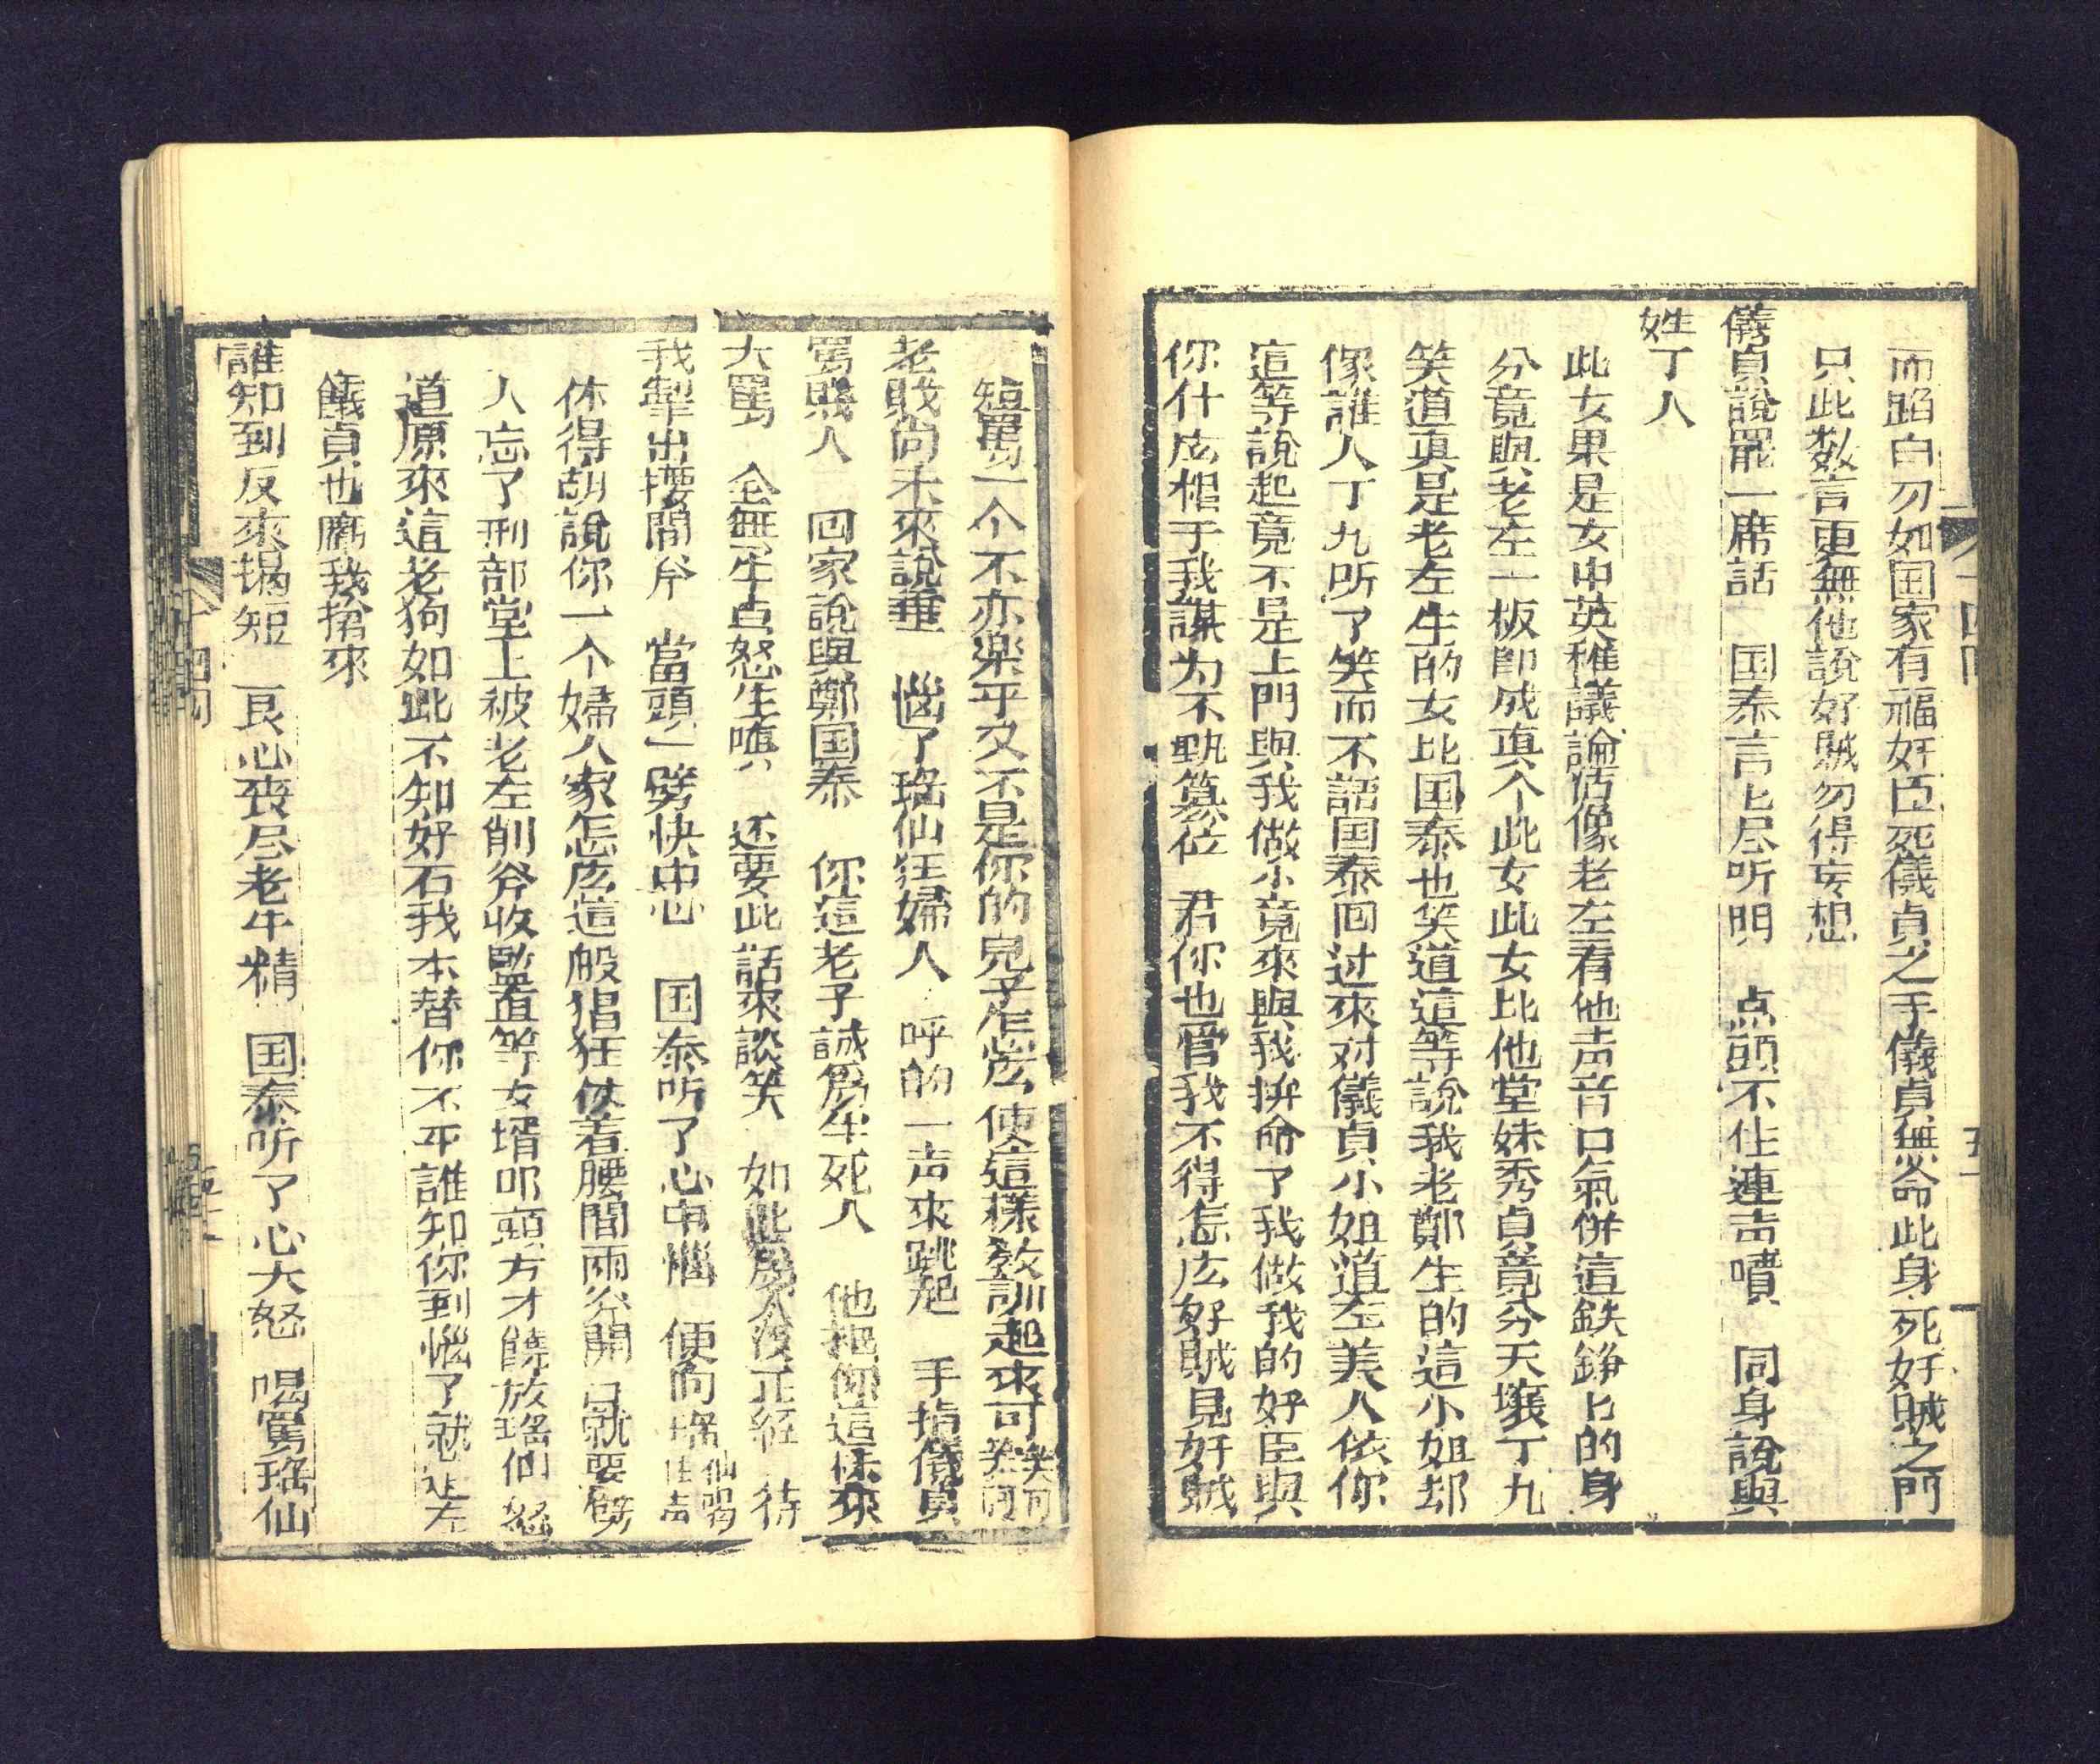 而陷白刃如国家有福奸臣死儀貞之手儀貞無命此身死奸賊之門
只此数言更無他說奸賊勿得妄想
儀貞說罷一席話　国泰言匕尽听明　点頭不住連声嘖　同身說與
姓丁人
此女果是女中英稚議論活像老左看他声音口氣併這鉄錚匕的身
分竟與老左一板卽成真个此女此女比他堂妹秀貞竟分天壤丁九
笑道真是老左生的女比国泰也笑道這等說我老鄭生的這小姐却
像誰人丁九听了笑而不語国泰回过來对儀貞小姐道左美人依你
這等說起竟不是上門與我做小竟來與我拚命了我做我的奸臣與
你什庅相于我謀为不軌篡位　君你也管我不得怎庅奸賊見奸賊
十四回
五一
短罵一个不亦楽乎又不是你的兒子怎庅使這樣教訓起來可笑可
老賤尚未來說垂　惱了瑤仙狂婦人　呼的一声來跳起　手指儀貞
罵賤人　回家說與鄭国泰　你這老子誠為牛死人　他把你這伩來
大罵　全無半点怒生嗔　还要此話來談笑　如此為人没正經　待
我掣出摟間斧　當頭一劈快中心　国泰听了心中惱　便向瑤仙喝住声
休得胡說你一个婦人家怎庅這般猖狂伩着腰間兩斧開口就要劈
人忘了刑部堂上被老左削斧收監置等女壻叩頭方才饒放瑤仙怒
道原來這老狗如此不知好石我本替你不平誰知你到惱了就是左
儀貞也虧我搶來
誰知到反來揭短　良心喪尽老牛精　国泰听了心大怒　喝罵瑤仙